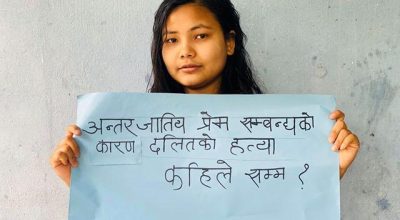 अन्तरजातिय प्रेम सम्वन्धको
कारण दलितको हत्या
कहिले सम्म ?